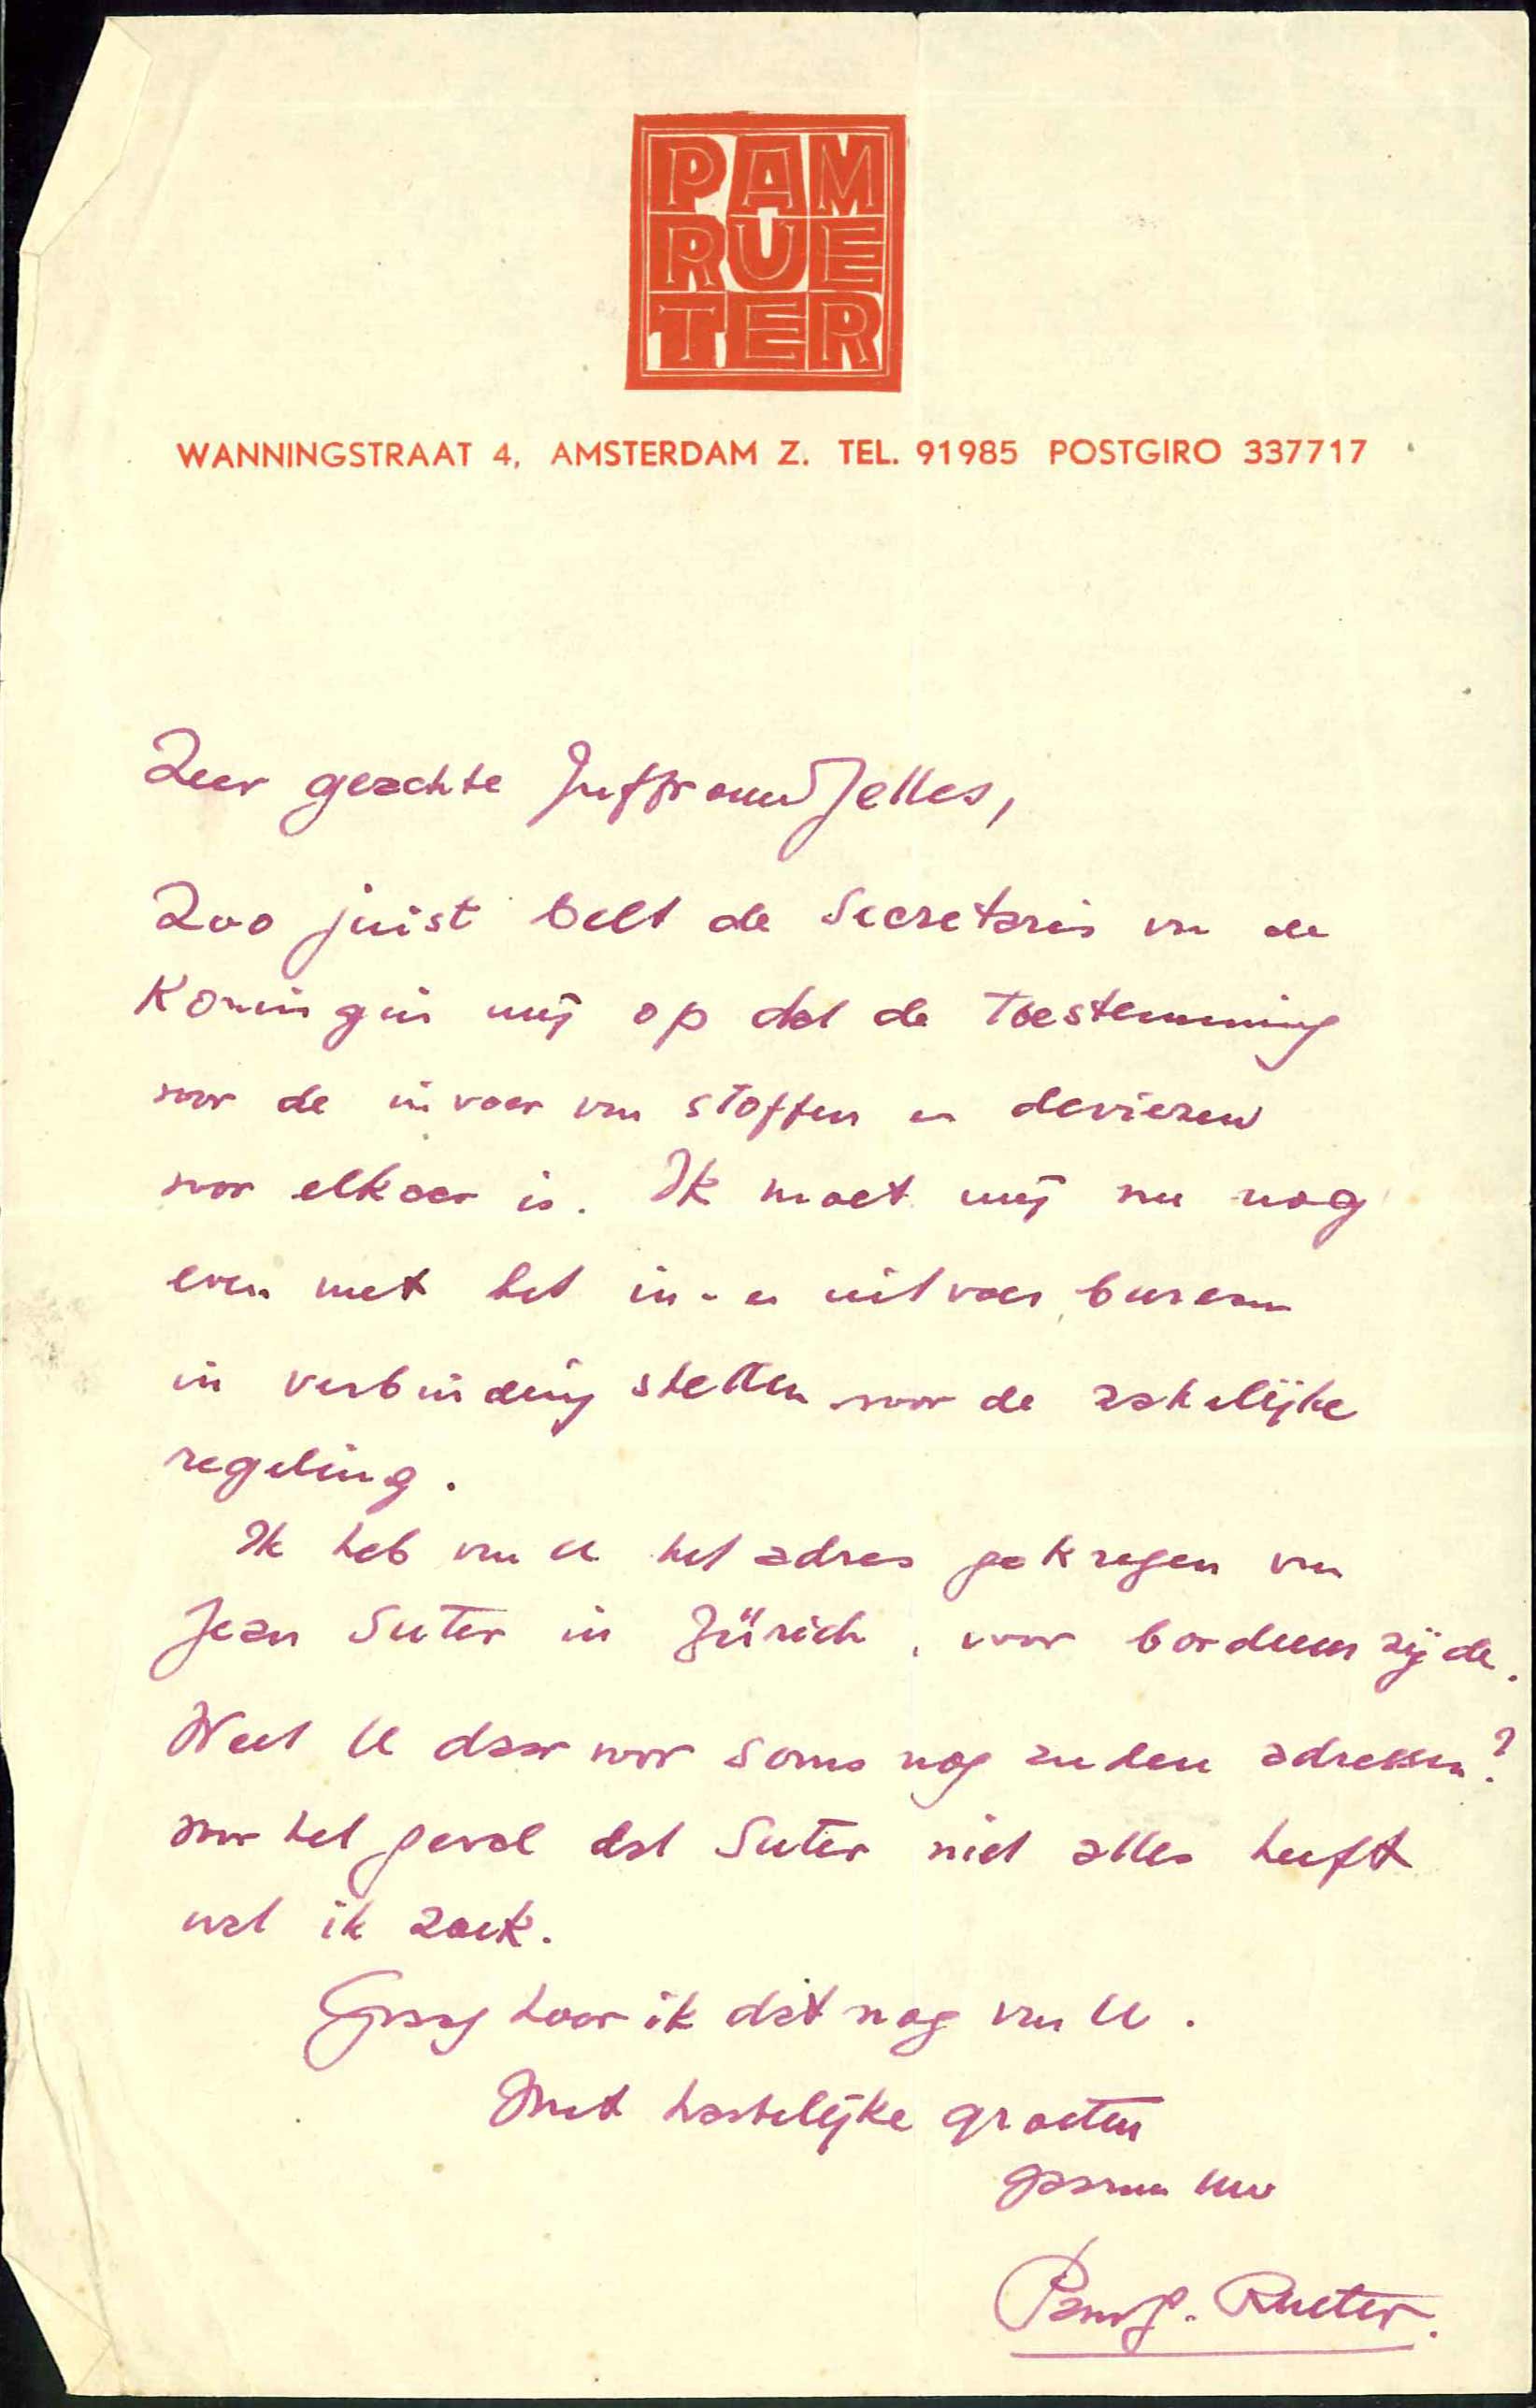 PAM
RUE
TER
WANNINGSTRAAT 4, AMSTERDAM Z. TEL. 91985 POSTGIRO 337717
Zeer geachte Juffrouw Jelles,
Zoo juist belt de Secretaris van de
Koningin mij op dat de Toestemming
voor de invoer van stoffen en deviezen
voor elkaar is. Ik moet mij nu nog
even met het in- en uitvoer bureau
in verbinding stellen voor de zakelijke
regeling.
Ik heb van U het adres gekregen van
Jean Suter in Zürich, voor borduurzijde.
Weet U daar voor soms nog andere adressen?
voor het geval dat Suter niet alles heeft
wat ik zoek.
Graag hoor ik dat nog van U.
Met hartelijke groeten
gaarne Uw
Pam G. Rueter.